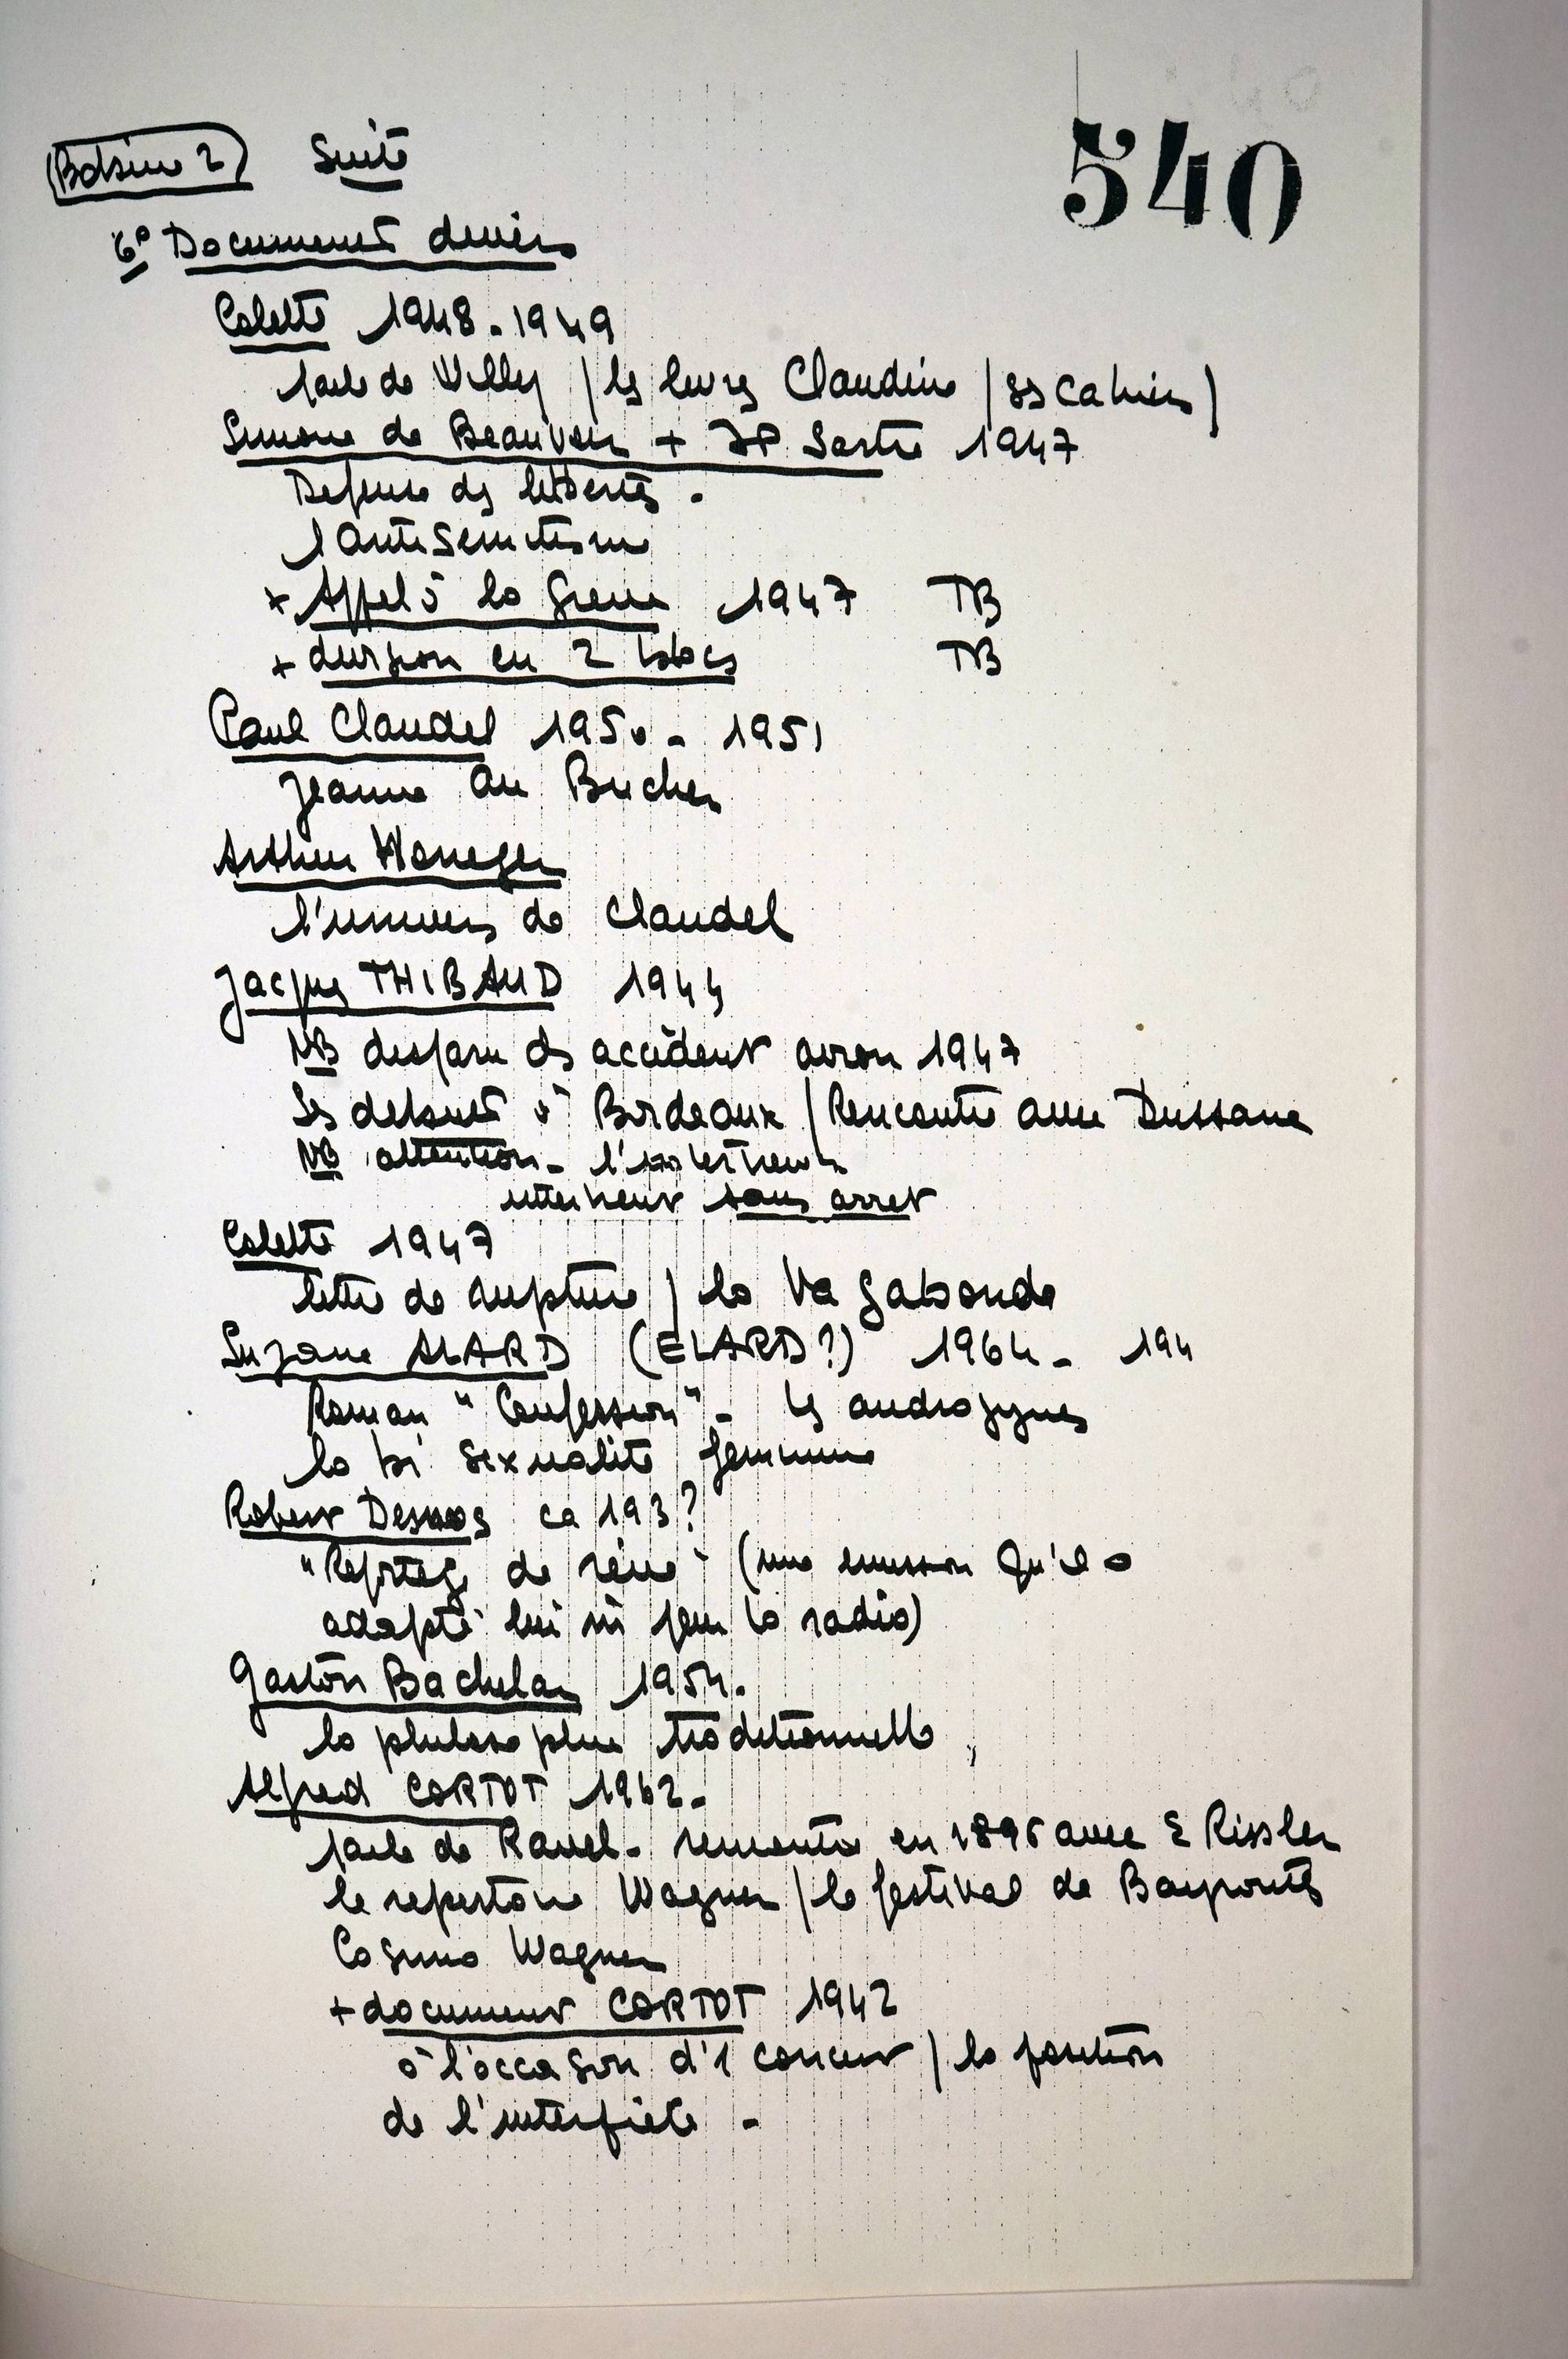 540
(Bobine 2) Suite
6° Documents divers
Colette 1948-1949
parle de Willy / les livres Claudine / ss cahiers /
Simone de Beauvoir + JP Sartre 1947
Defense ds libertés.
l'antisemitisme
+ Appel à la Guerre 1947 TB
+ division en 2 blocs TB
Paul Claudel 1950 - 1951
Jeanne au Bucher
Arthur Honeger
l'univers de Claudel
Jacques THIBAUD 1944
NB disparu ds accident avion 1947
Ses debuts à Bordeaux / Rencontre avec Dussane
NB attention -
intervient sans arret
Colette 1947
lettre de rupture / la Vagabonde
Suzane ALARD (ELARD?) 1964 - 194
Roman "Confession" - les androgynes
la bi sexualité feminine
Robert Desnos ca 193?
"Reportage de rêve" (une emission qu'il a
adapté lui mi pour la radio)
Gaston Bachelar 1954.
la philosophie traditionnelle
Alfred CORTOT 1962.
parle de Ravel - rencontre en 1896 avec E Rissler
le repertoire Wagner / le festival de Bayrouth
Cosima Wagner
+ document CORTOT 1942
à l'occasion d'1 concert / la position
de l'interprète -